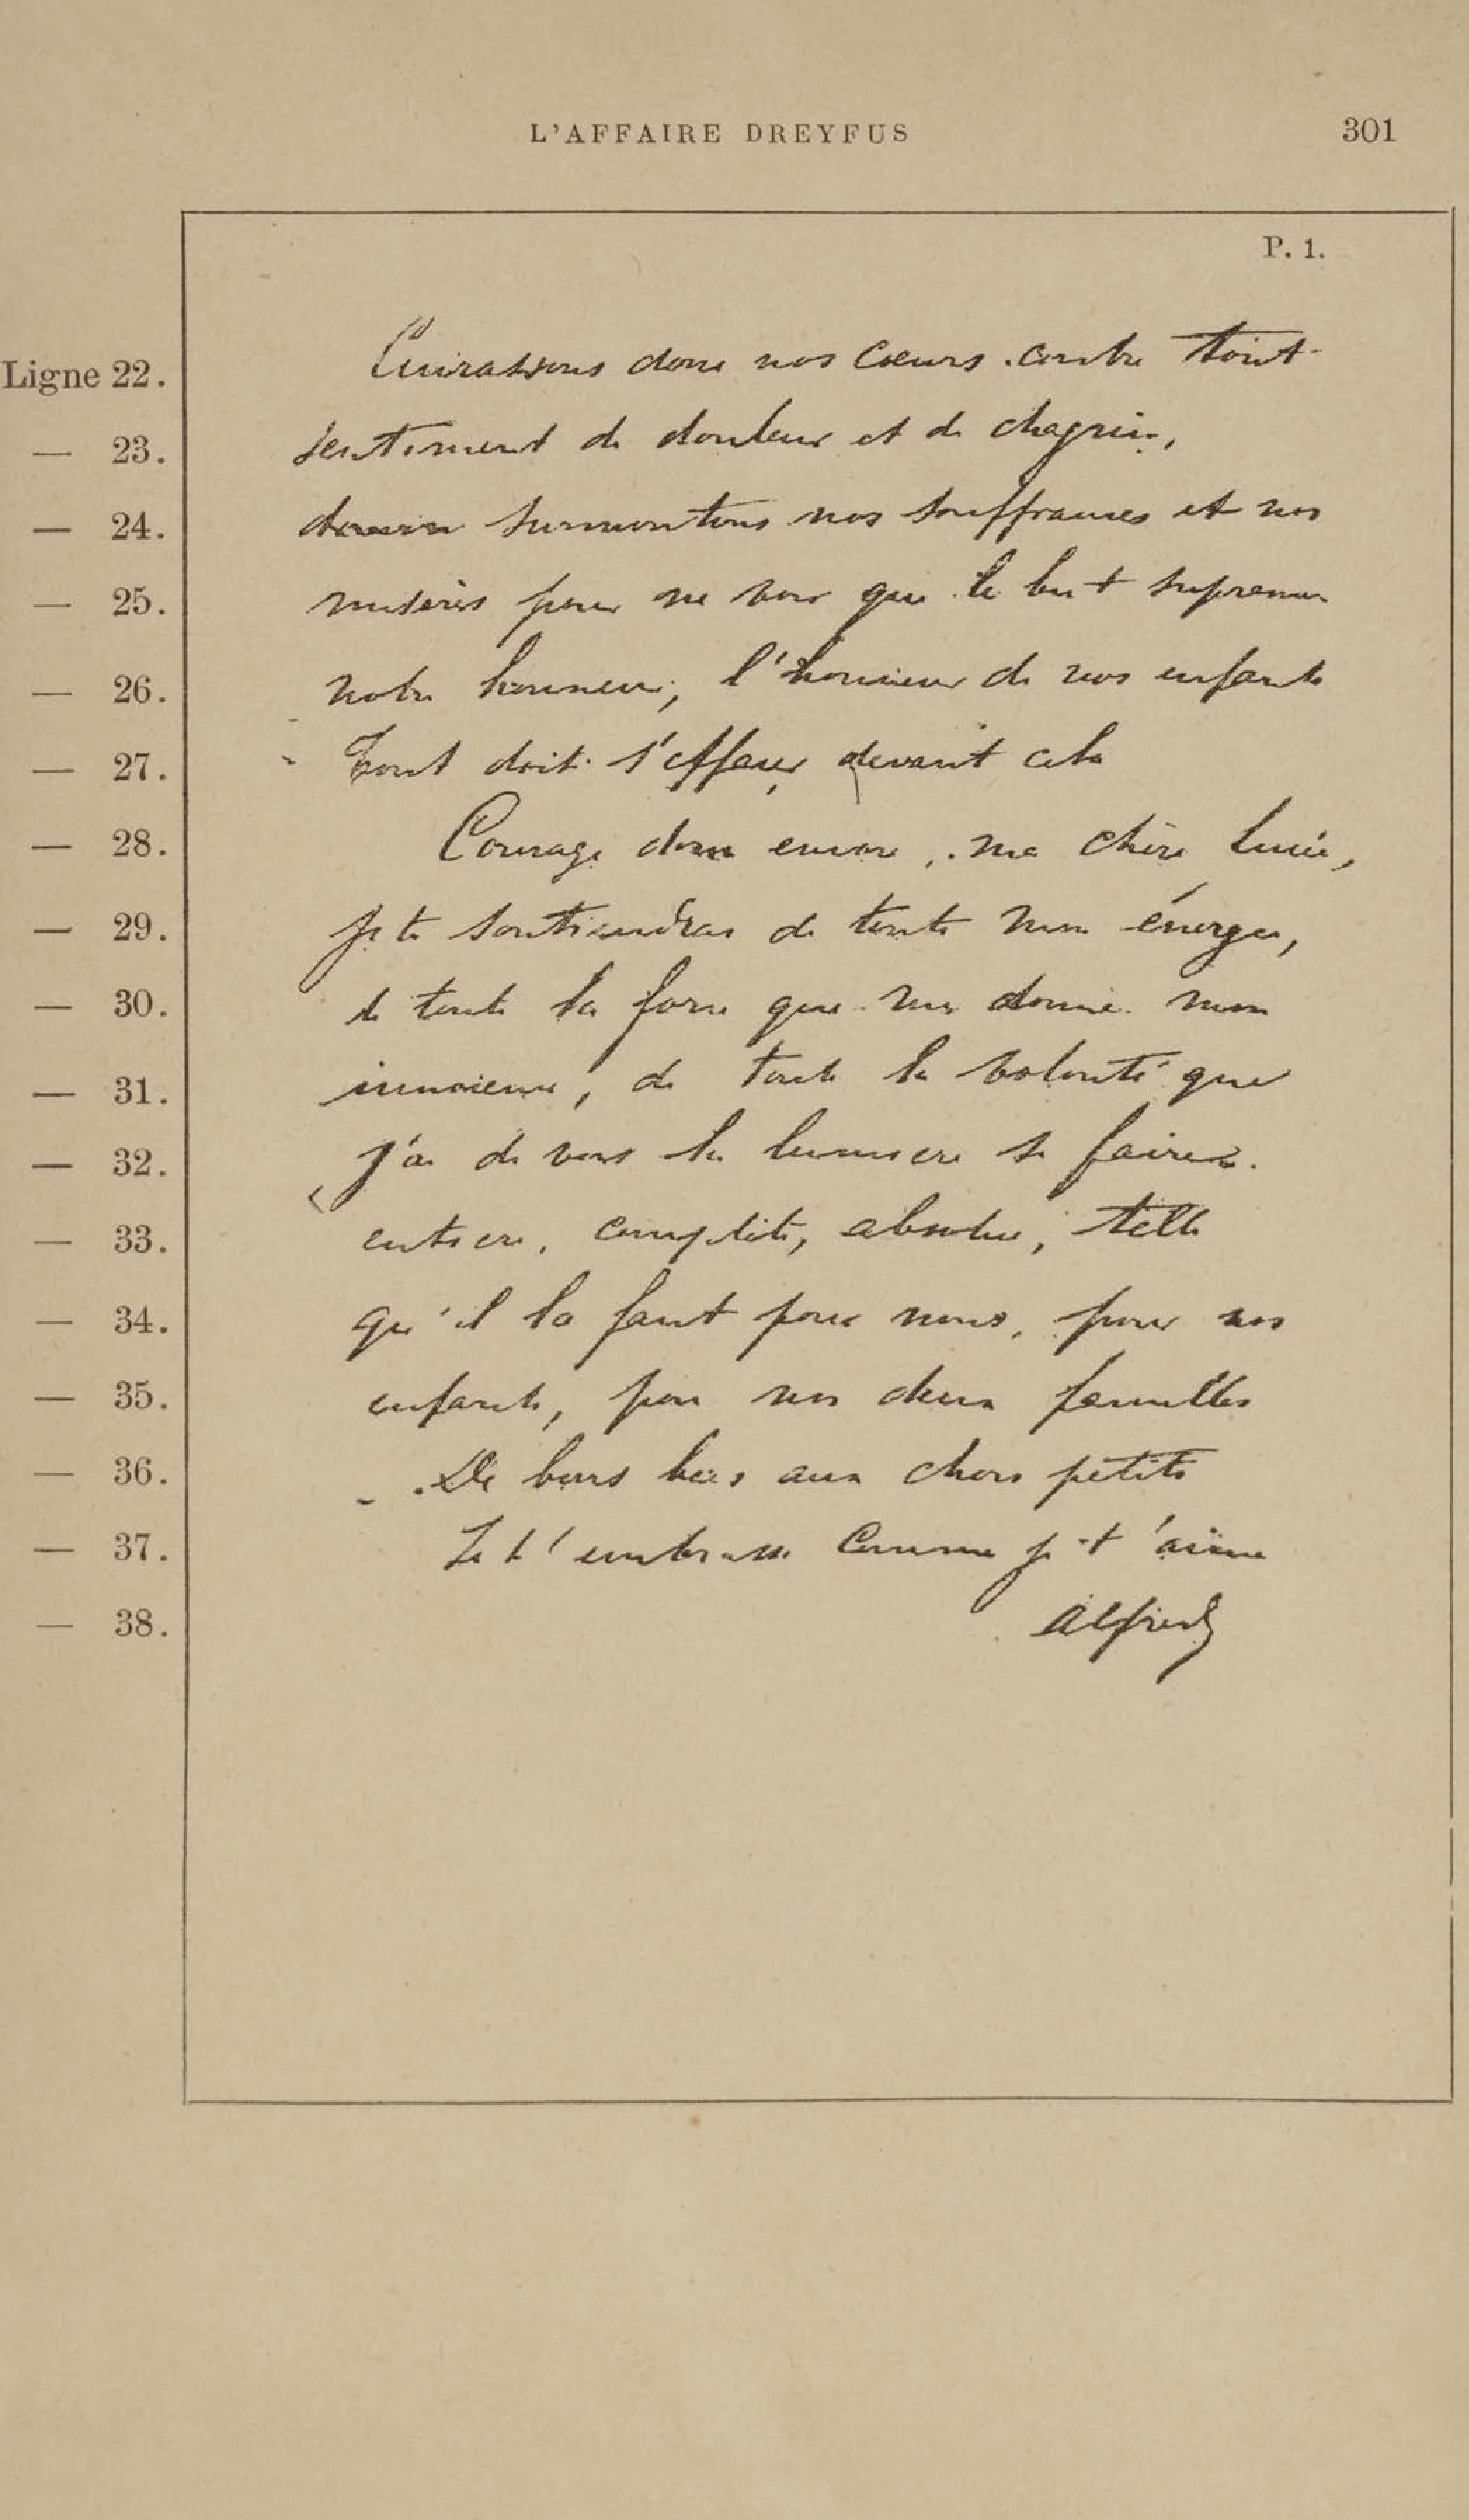 L'AFFAIRE DREYFUS 301
P. 1.
Ligne 22. Cuirassons donc nos cœurs contre tout
— 23. sentiment de douleur et de chagrin,
— 24. surmontons nos souffrances et nos
— 25. misères pour ne voir que le but suprême
— 26. notre honneur, l'honneur de nos enfants
— 27. Tout doit s'effacer devant cela
— 28. Courage donc encore, ma chère Lucie,
— 29. je te soutiendrai de toute mon énergie,
— 30. de toute la force que me donne mon
— 31. innocence, de toute la volonté que
— 32. j'ai de voir la lumière se faire
— 33. entière, complète, absolue, telle
— 34. qu'il la faut pour nous, pour nos
— 35. enfants, pour nos deux familles
— 36. De bons baisers aux chers petits
— 37. Je t'embrasse comme je t'aime
— 38. Alfred